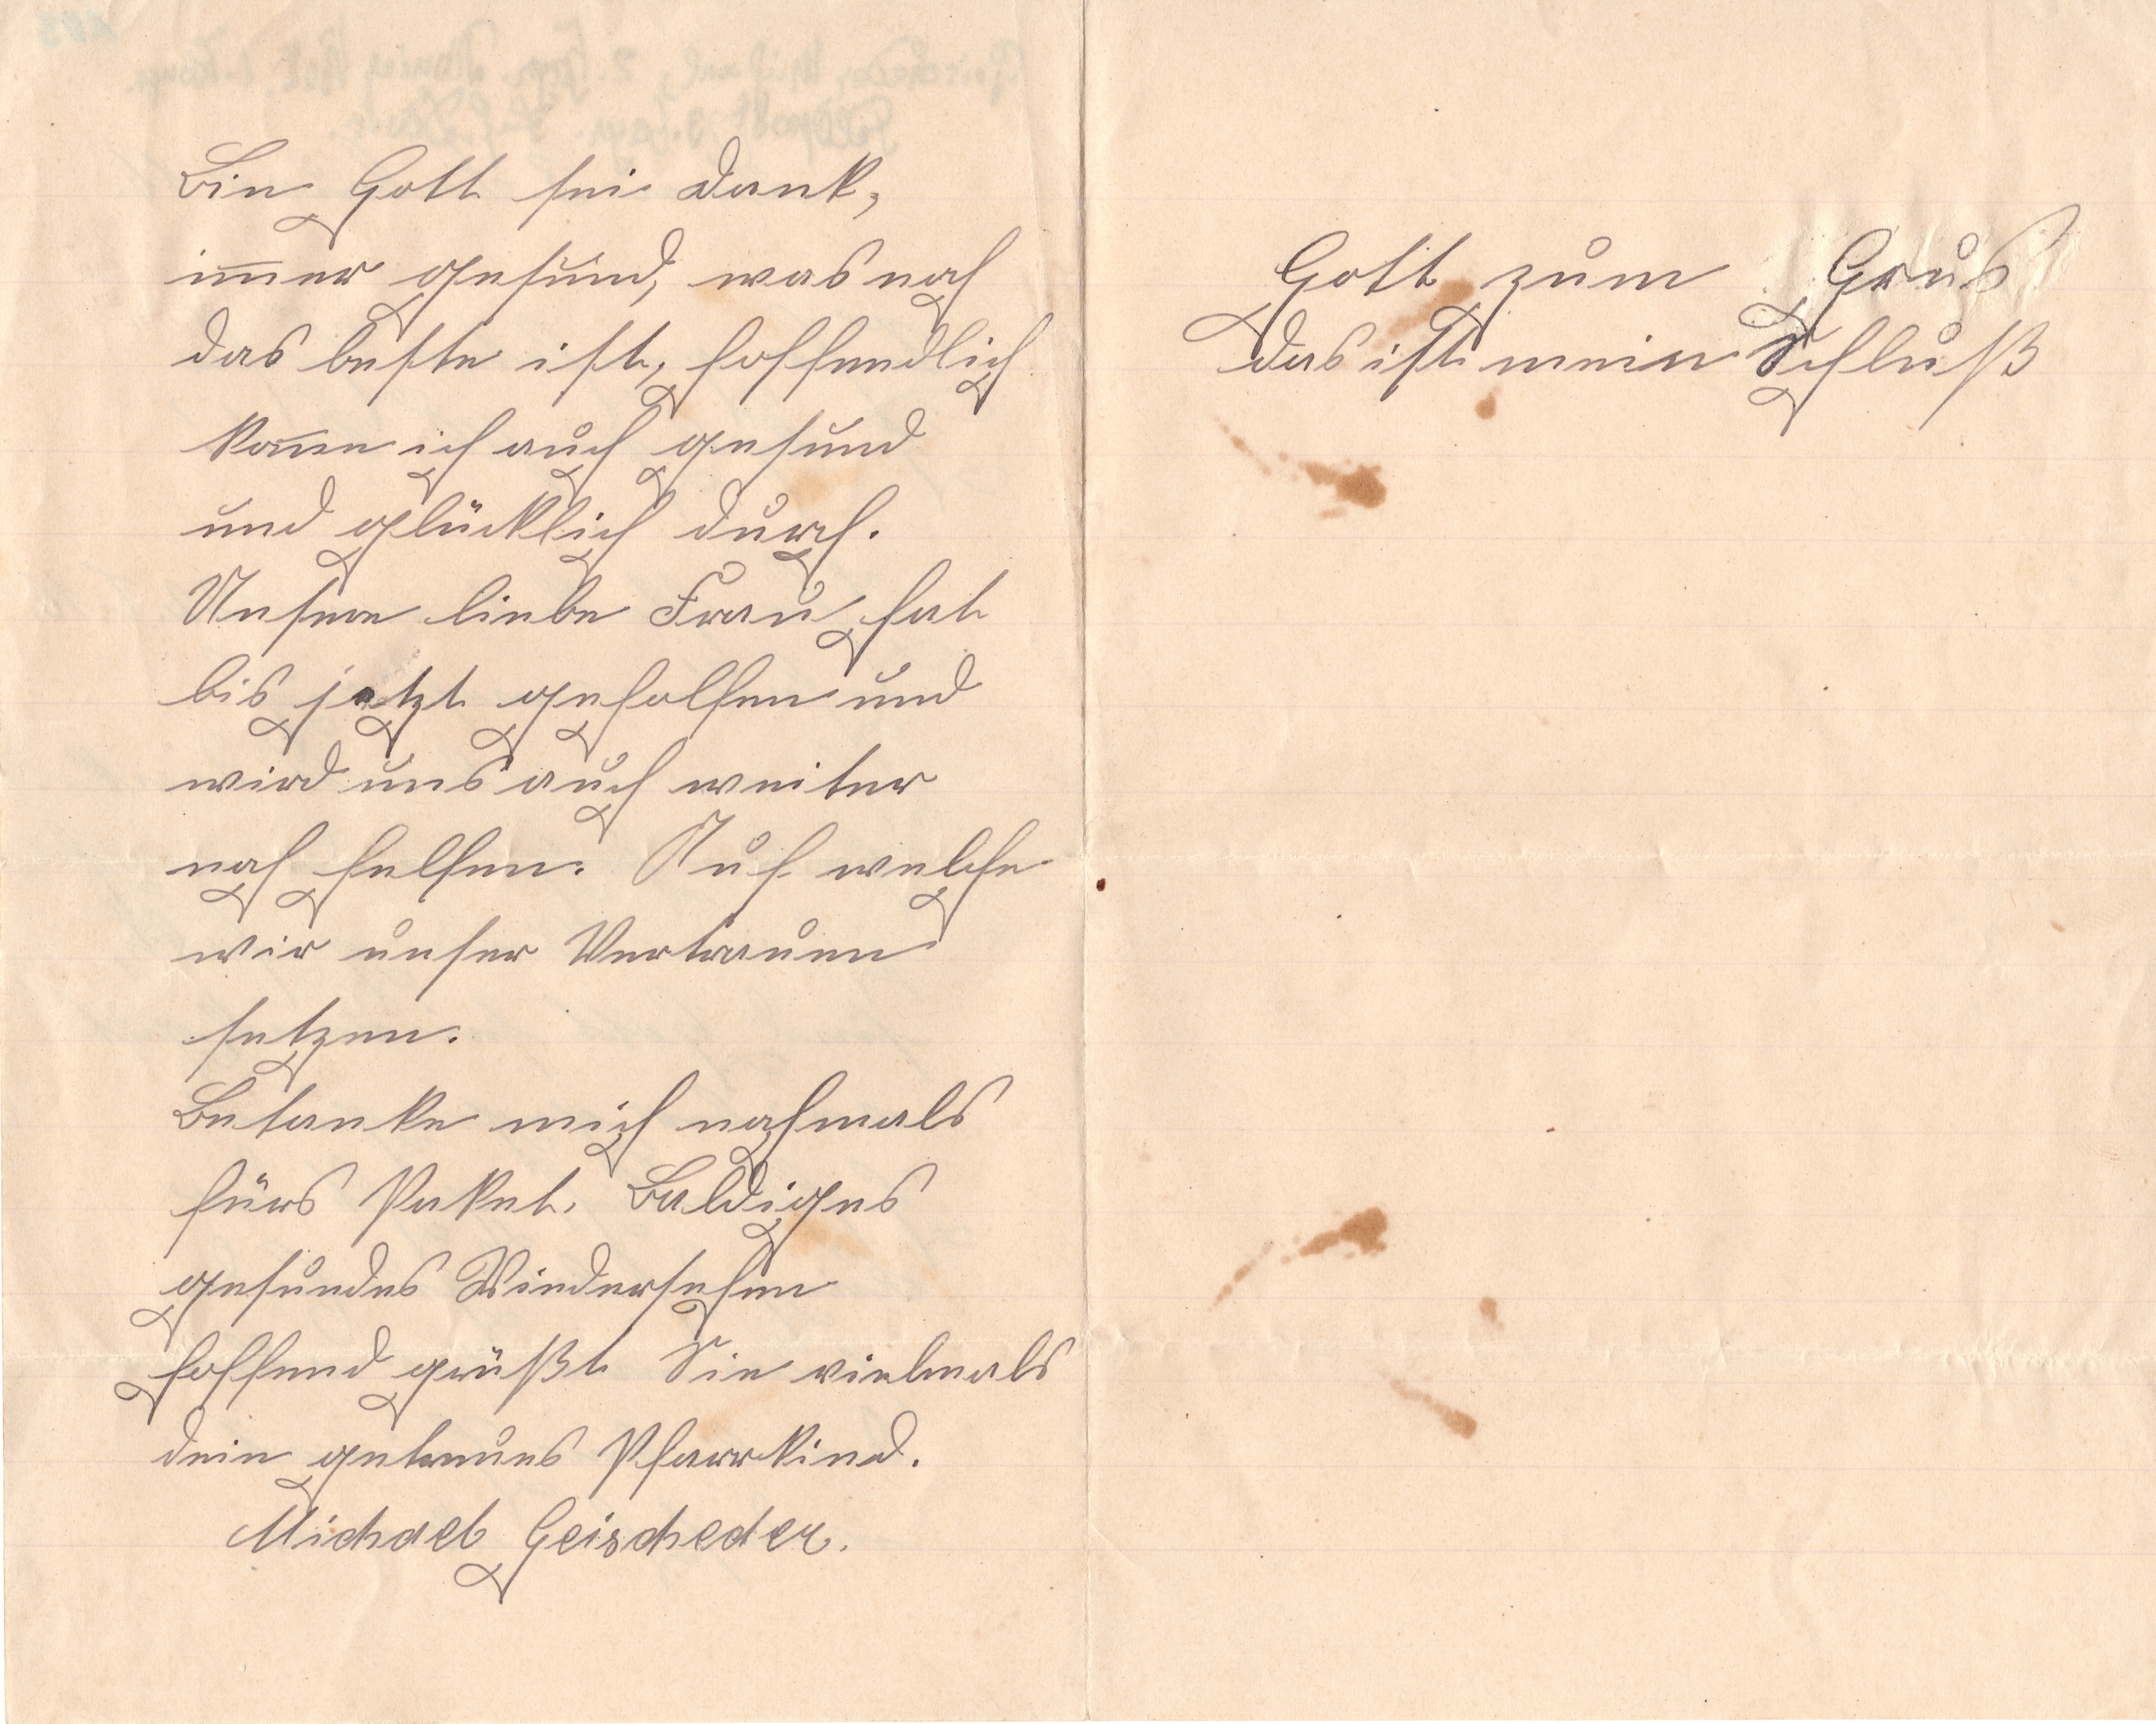 Bin Gott sei Dank,
im̅er gesund, was noch
das beste ist, hoffendlich
kom̅e ich auch gesund
und glücklich durch.
Unsere liebe Frau hat
bis jetzt geholfen und
wird uns auch weiter
noch helfen. Auf welche
wir unser Vertrauen
setzen.
Betanke mich nochmals
fürs Paket. Baldiges
gesundes Wiedersehen
hoffend grüßt Sie vielmals
dein getreues Pfarrkind.
Michael Geischeder.
Gott zum Grus
das ist mein Schluß